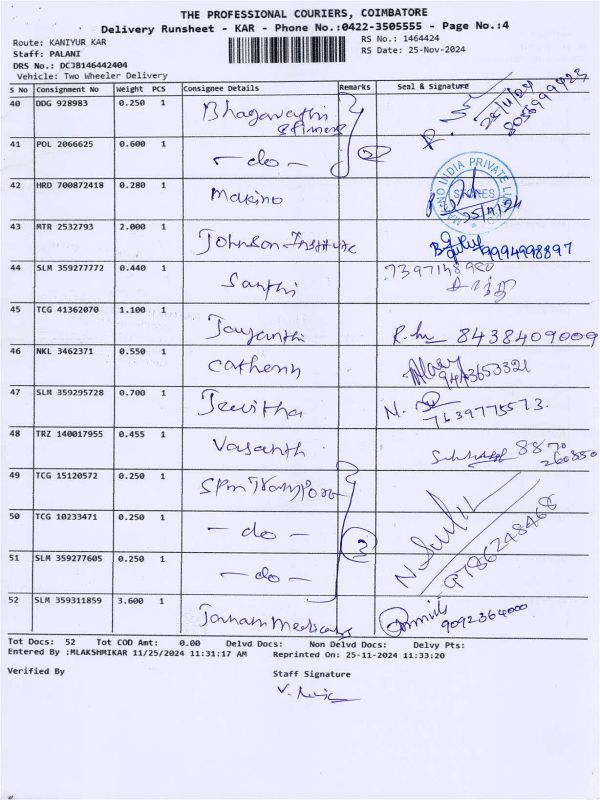 THE PROFESSIONAL COURIERS, COIMBATORE
Delivery Runsheet - KAR - Phone No.:0422-3505555 - Page No.:4
Route: KANIYUR KAR
RS No.: 1464424
Staff: PALANI
RS Date: 25-Nov-2024
DRS No.: DCJB146442404
Vehicle: Two Wheeler Delivery
S No Consignment No Weight PCS Consignee Details Remarks Seal & Signature
40 DDG 928983 0.250 1 Bhagavathi
25/11/24
41 POL 2066625 0.600 1 - do - 2
42 HRD 700872418 0.280 1 Makino
INDIA PRIVATE
STORES
25/11/24
43 MTR 2532793 2.000 1 Johnson Institute 9994998897
44 SLM 359277772 0.440 1 Santhi
45 TCG 41362070 1.100 1 Jayanthi 8438409009
46 NKL 3462371 0.550 1
47 SLM 359295728 0.700 1 Jeevitha N.
7639775573
48 TRZ 140017955 0.455 1 Vasanth 8870
260850
49 TCG 15120572 0.250 1 SPM Transport
50 TCG 10233471 0.250 1 - do - 3
51 SLM 359277605 0.250 1 - do -
9786248468
52 SLM 359311859 3.600 1 Medicals
9092364000
Tot Docs: 52 Tot COD Amt: 0.00 Delvd Docs: Non Delvd Docs: Delvy Pts:
Entered By :MLAKSHMIKAR 11/25/2024 11:31:17 AM Reprinted On: 25-11-2024 11:33:20
Verified By
Staff Signature